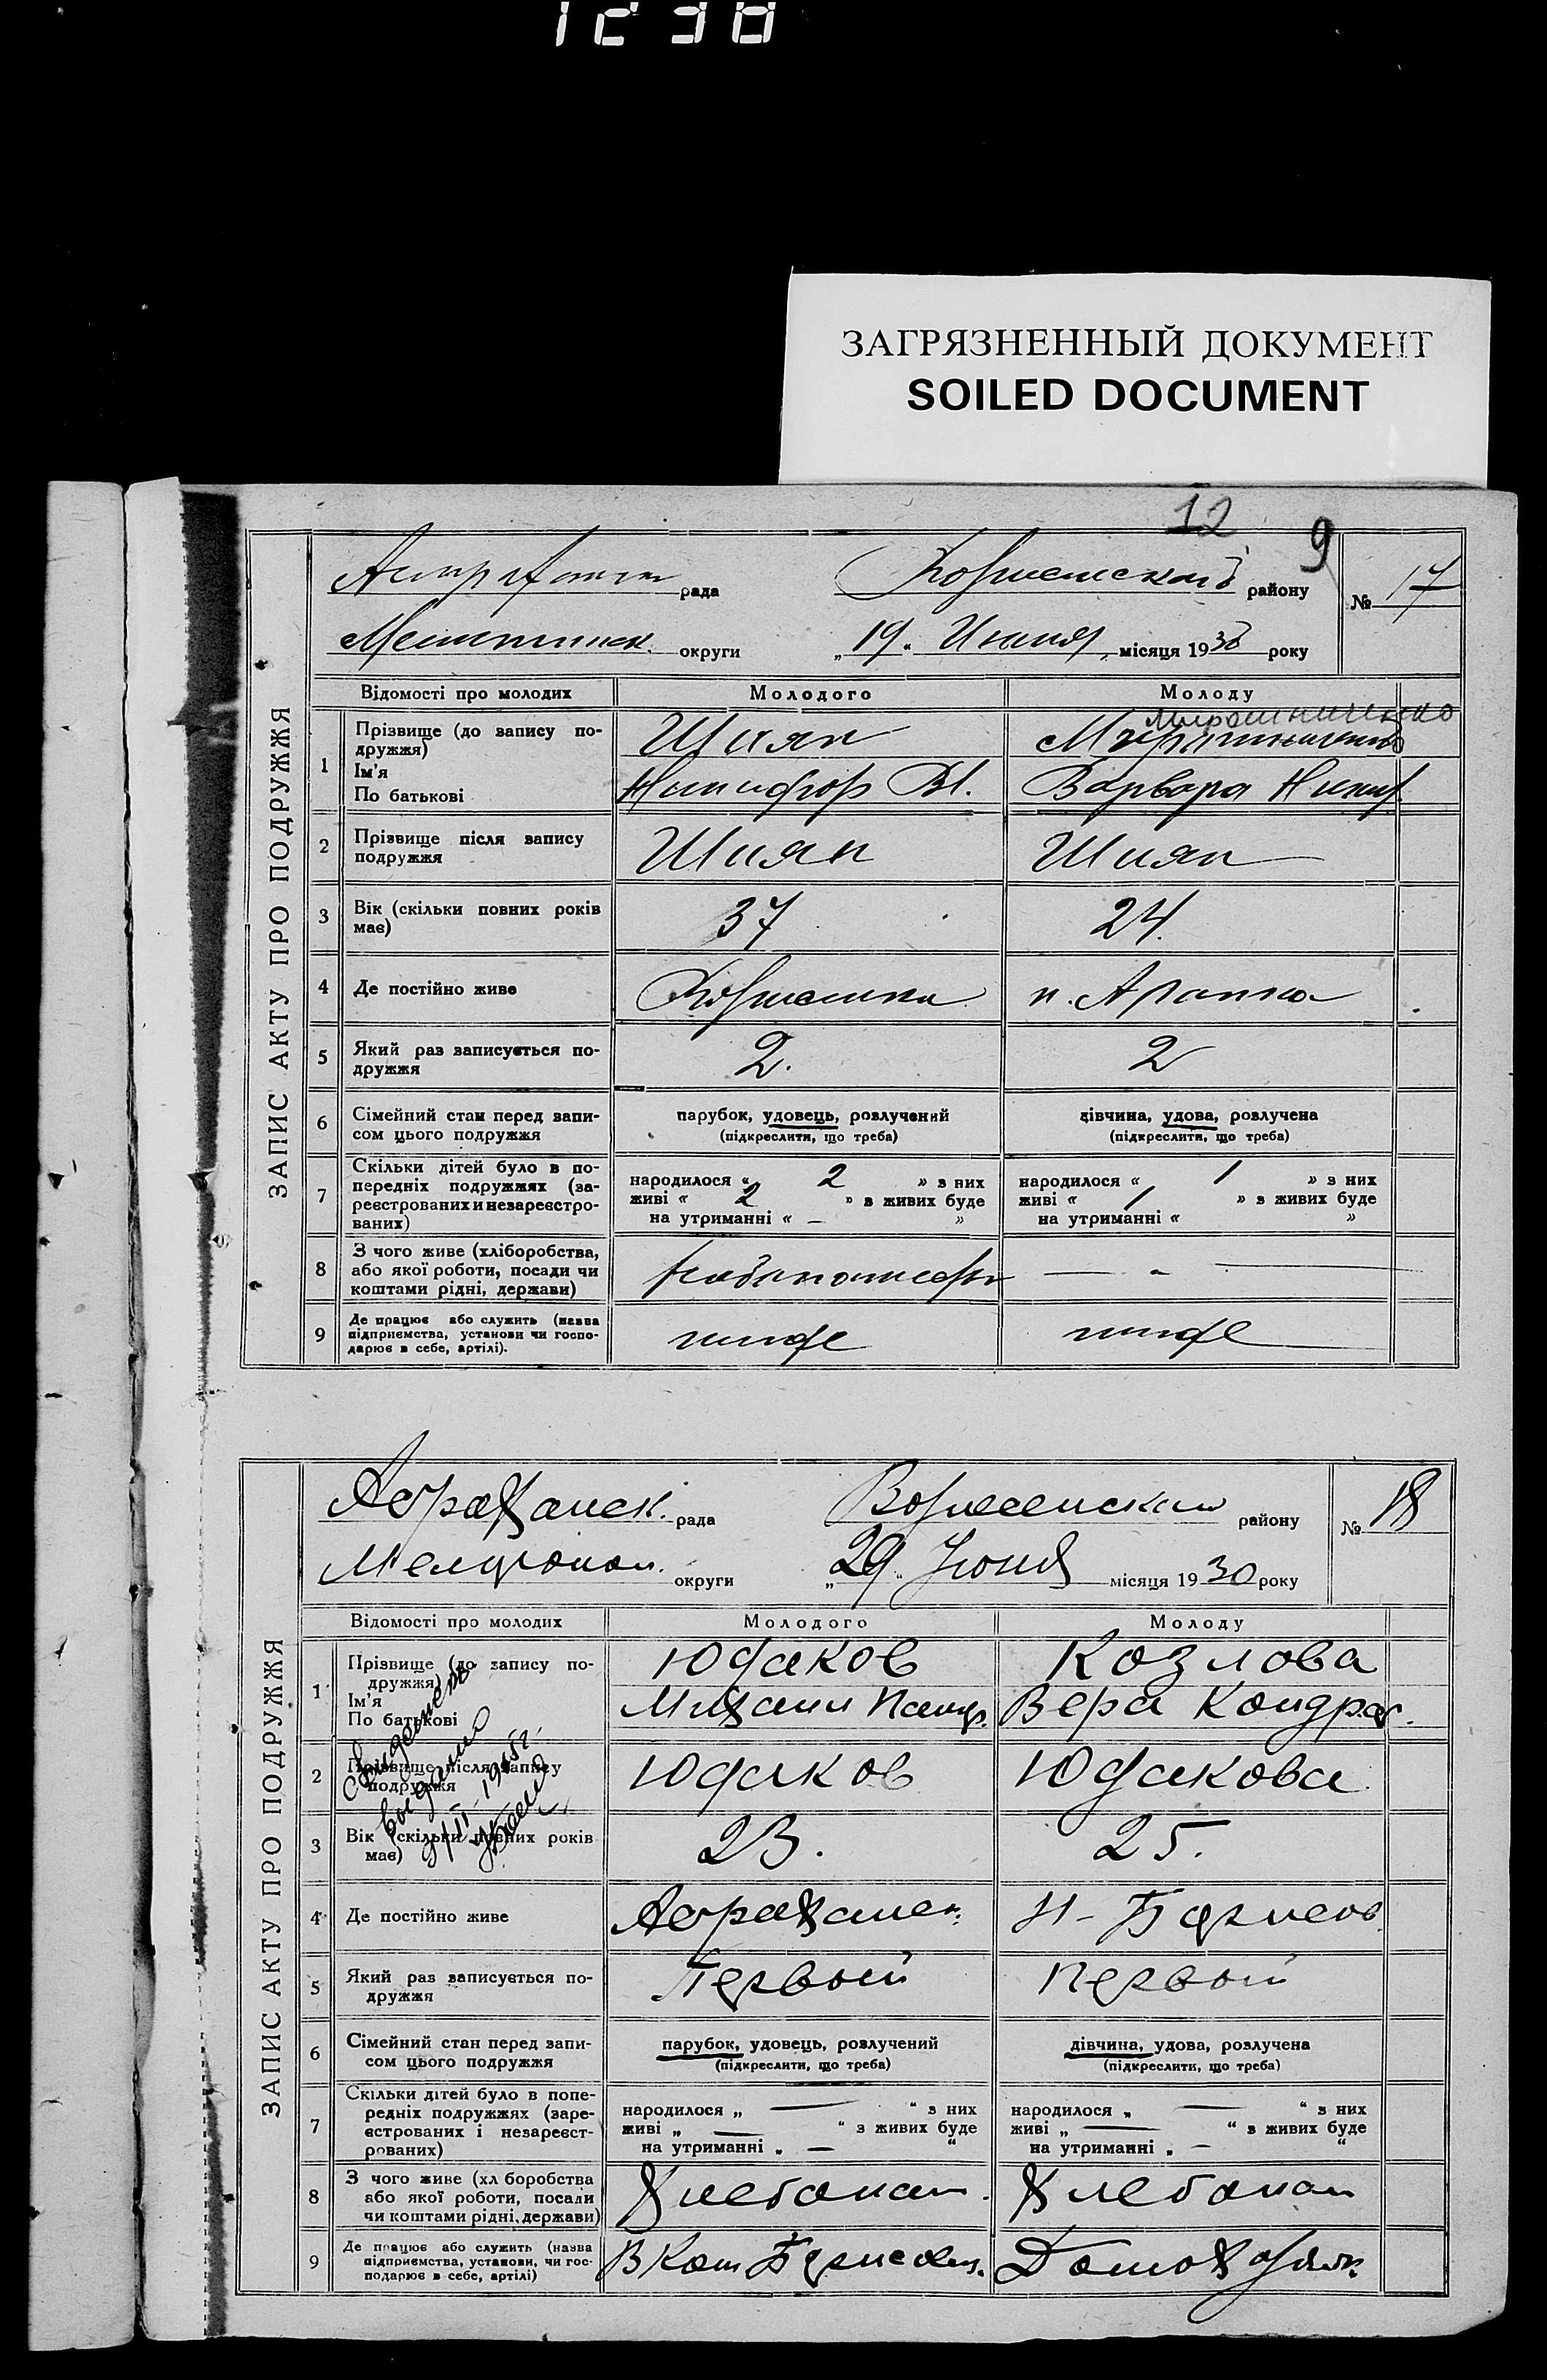 1238
ЗАГРЯЗНЕННЫЙ ДОКУМЕНТ
SOILED DOCUMENT
12 9
ЗАПИС АКТУ ПРО ПОДРУЖЖЯ
рада району № 17
округи „19“ Июня місяця 1930 року
Відомості про молодих Молодого Молоду
Мирошниченко
1 Прізвище (до запису по-
дружжя) Шиян Мирошниченко
Ім'я
По батькові Никифор Вл. Варвара Никиф.
2 Прізвище після запису
подружжя Шиян Шиян
3 Вік (скільки повних років
має) 37 24.
4 Де постійно живе
5 Який раз записується по-
дружжя 2. 2
6 Сімейний стан перед запи-
сом цього подружжя
парубок, удовець, розлучений
(підкреслити, що треба)
дівчина, удова, розлучена
(підкреслити, що треба)
7 Скільки дітей було в по-
передніх подружжях (за-
реєстрованих и незареєстро-
ваних)
народилося « 2 » з них
живі « 2 » з живих буде
на утриманні « — »
народилося « 1 » з них
живі « 1 » з живих буде
на утриманні « »
8 З чого живе (хліборобства,
або якої роботи, посади чи
коштами рідні, держави) — „ —
9 Де працює або служить (назва
підприємства, установи чи госпо-
дарює в себе, артілі).
ЗАПИС АКТУ ПРО ПОДРУЖЖЯ
рада району № 18
Мелитопол. округи „29“ Июня місяця 1930 року
Відомості про молодих Молодого Молоду
1 Прізвище (до запису по-
дружжя) Юдаков Козлова
Ім'я
По батькові Михаил Вера Кондрат.
2 Прізвище після запису
подружжя Юдаков Юдакова
3 Вік (скільки повних років
має) 23. 25.
4 Де постійно живе
5 Який раз записується по-
дружжя Первый Первый
6 Сімейний стан перед запи-
сом цього подружжя
парубок, удовець, розлучений
(підкреслити, що треба)
дівчина, удова, розлучена
(підкреслити, що треба)
7 Скільки дітей було в попе-
редніх подружжях (заре-
єстрованих і незареєст-
рованих)
народилося „ — “ з них
живі „ — “ з живих буде
на утриманні „ — “
народилося „ — “ з них
живі „ — “ з живих буде
на утриманні „ — “
8 З чого живе (хл боробства
або якої роботи, посади
чи коштами рідні, держави) Хлебопаш. Хлебопаш
9 Де працює або служить (назва
підприємства, установи, чи гос-
подарює в себе, артілі)